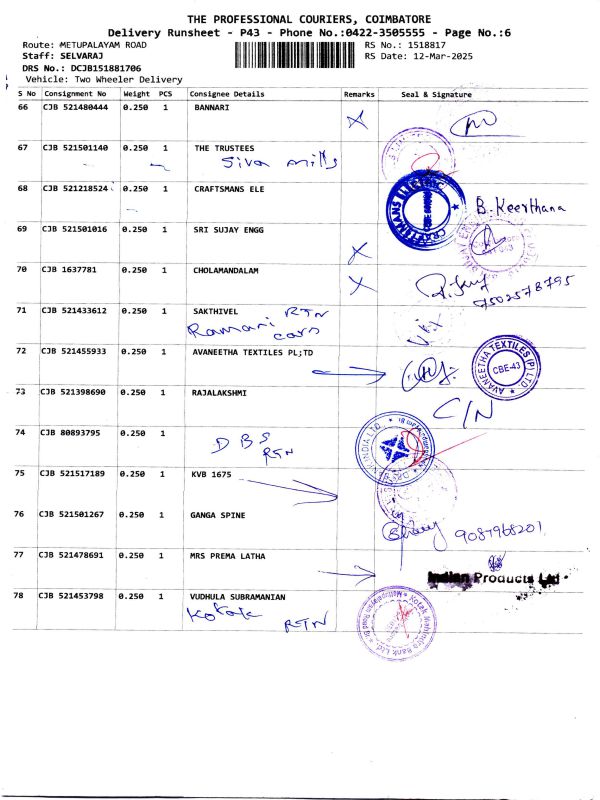 THE PROFESSIONAL COURIERS, COIMBATORE
Delivery Runsheet - P43 - Phone No.:0422-3505555 - Page No.:6
Route: METUPALAYAM ROAD RS No.: 1518817
Staff: SELVARAJ RS Date: 12-Mar-2025
DRS No.: DCJB151881706
Vehicle: Two Wheeler Delivery
S No Consignment No Weight PCS Consignee Details Remarks Seal & Signature
66 CJB 521480444 0.250 1 BANNARI X
67 CJB 521501140 0.250 1 THE TRUSTEES
Siva mills
68 CJB 521218524 0.250 1 CRAFTSMANS ELE
CRAFTSMANS ELECTRIC
B. Keerthana
69 CJB 521501016 0.250 1 SRI SUJAY ENGG
X
70 CJB 1637781 0.250 1 CHOLAMANDALAM X
7502578795
71 CJB 521433612 0.250 1 SAKTHIVEL RTN
Ramani cars
72 CJB 521455933 0.250 1 AVANEETHA TEXTILES PL;TD
AVANEETHA TEXTILES (P) LTD.
CBE-43
73 CJB 521398690 0.250 1 RAJALAKSHMI
C/N
74 CJB 80893795 0.250 1
DBS
RTN
INDIA LTD.
75 CJB 521517189 0.250 1 KVB 1675
76 CJB 521501267 0.250 1 GANGA SPINE
9087968201
77 CJB 521478691 0.250 1 MRS PREMA LATHA
Indian Products Ltd
78 CJB 521453798 0.250 1 VUDHULA SUBRAMANIAN
Kotak RTN
Kotak Mahindra Bank Ltd. Mettupalayam Road Br